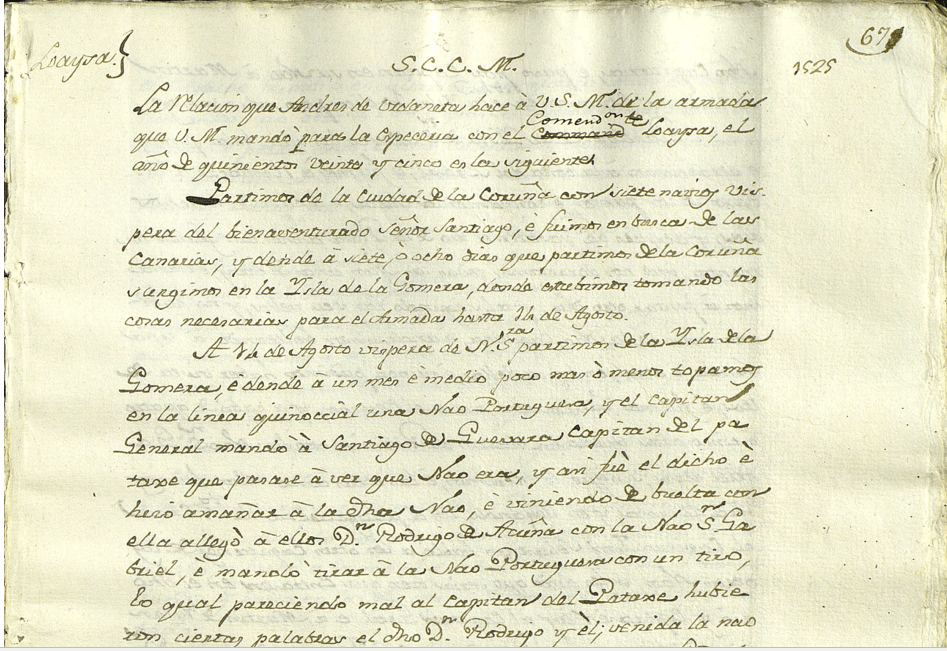 Loaysa.}
67
S. C. C. M.
1525
La relacion que Andres de Urdaneta hace à V. S. M. de la armada
que V. M. mandò para la Especeria con el Comend.te
Loaysa, el
año de quinientos veinte y cinco en la siguiente.
Partimos de la Ciudad de la Coruña con siete navios vis
pera del bienaventurado Señor Santiago, è fuimos en busca de las
Canarias, y dende à siete, ò ocho dias que partimos de la Coruña
surgimos en la Ysla de la Gomera, donde estubimos tomando las
cosas necesarias para el Armada hasta 14 de Agosto.
A 14 de Agosto vispera de N.ª S.ra partimos de la Ysla de la
Gomera, è dende à un mes è medio poco mas ò menos topamos
en la linea quinoccial una Nao Portuguesa, y el capitan
General mandò à Santiago de Guevara Capitan del pa
taxe que pasase à ver que Nao era, y asi fuè el dicho è
hizo amañar à la dha Nao, è viniendo de buelta con
ella allegò à ellos D.n Rodrigo de Acuña con la Nao S.n Ga
briel, è mandò tirar à la Nao Portuguesa con un tiro,
lo qual pareciendo mal al Capitan del Pataxe hubie
ron ciertas palabras el dho D.n Rodrigo y èl; venida la nao